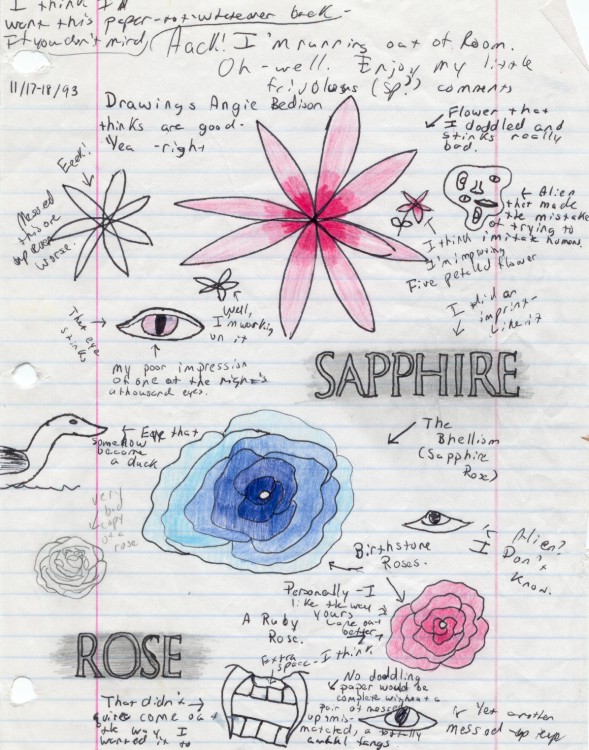 I think I'll
want this paper - or whatever back -
If you don't mind
Aack! I'm running out of Room.
Oh - well. Enjoy my little
frivolous (sp?) comments
11/17-18/93
Drawings Angie Bedison
thinks are good -
Yea - right
Flower that
I doddled and
stinks really
bad.
Eeek!
Messed
this one
up even
worse.
Alien
that made
the mistake
of trying to
imitate humans.
I think
I'm improving
Five petaled flower
Well,
I'm working
on it
That eye
stinks
I did an
imprint -
Like it
my poor impression
of one of the night's
a thousand eyes.
SAPPHIRE
Eye that
somehow
became
a duck
The
Bhelliom
(Sapphire
Rose)
very
bad
copy
of a
rose
Alien?
I Don't
Know.
Birthstone
Roses.
Personally - I
like the way
yours
came out
better -
I think
A Ruby
Rose.
ROSE
Extra
space -
No doddling
paper would be
complete without a
pair of messed
up mis-
matched, a totally
awful fangs
That didn't
quite come out
the way I
wanted it to
Yet another
messed-up eye